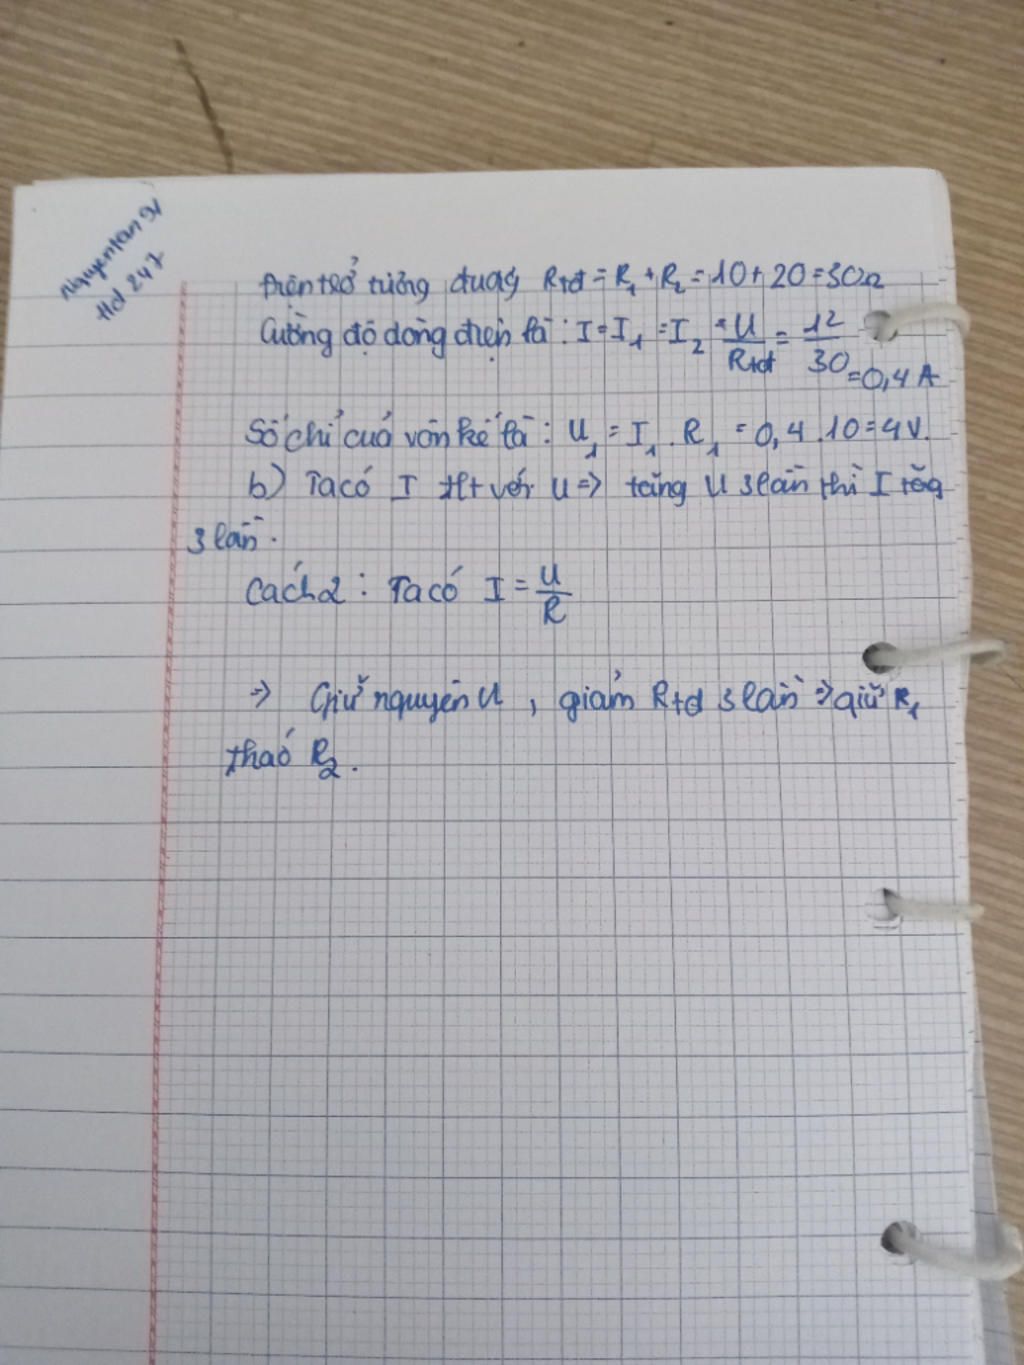 Nguyentan91
Hd 247
Điện trở tương đương Rtđ = R₁ + R₂ = 10 + 20 = 30Ω
Cường độ dòng điện là : I = I₁ = I₂ = U/Rtđ = 12/30 = 0,4 A
Số chỉ của vôn kế là : U₁ = I₁ . R₁ = 0,4 . 10 = 4 V.
b) Ta có I tlt với U => tăng U 3 lần thì I tăg
3 lần.
Cách 2 : Ta có I = U/R
=> Giữ nguyên U , giảm Rtđ 3 lần => giữ R₁
tháo R₂ .